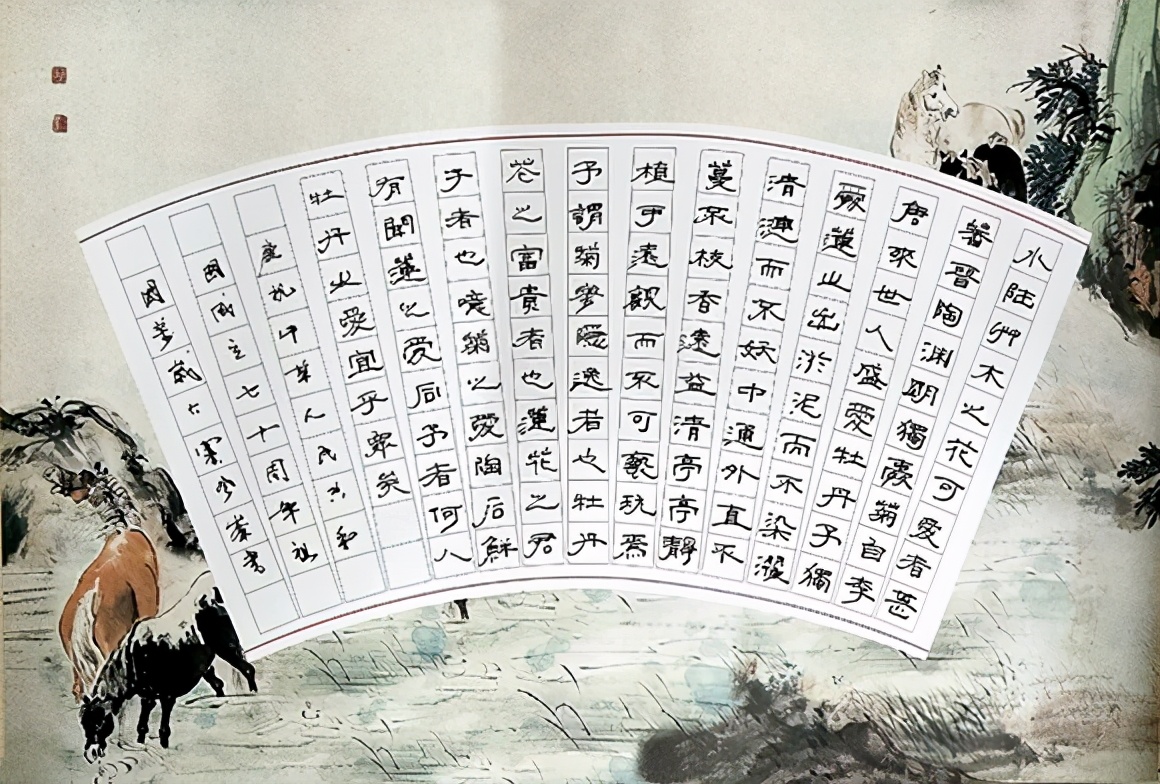 水陸艸木之花可愛者甚
蕃晉陶渊明獨愛菊自李
唐來世人盛愛牡丹予獨
愛蓮之出淤泥而不染濯
清漣而不妖中通外直不
蔓不枝香遠益清亭亭靜
植可遠觀而不可褻玩焉
予謂菊隱逸者也牡丹
花之富貴者也蓮花之君
子者也噫菊之愛陶后鮮
有聞蓮之愛同予者何人
牡丹之愛宜乎眾矣
庆祝中華人民共和
國成立七十周年祖
國萬歲書